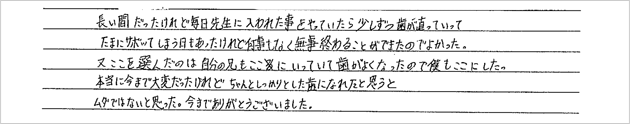 長い間だったけれど毎日先生に入われた事をやっていたら少しずつ歯が直っていって
たまにサボってしまう日もあったけれど何事もなく無事終わることができたのでよかった。
又ここを選んだのは自分の兄もここ家にいっていて歯がよくなったので僕もここにした。
本当に今まで大変だったけれどちゃんとしっかりとした歯になれたと思うと
ムダではないと思った。今までありがとうございました。